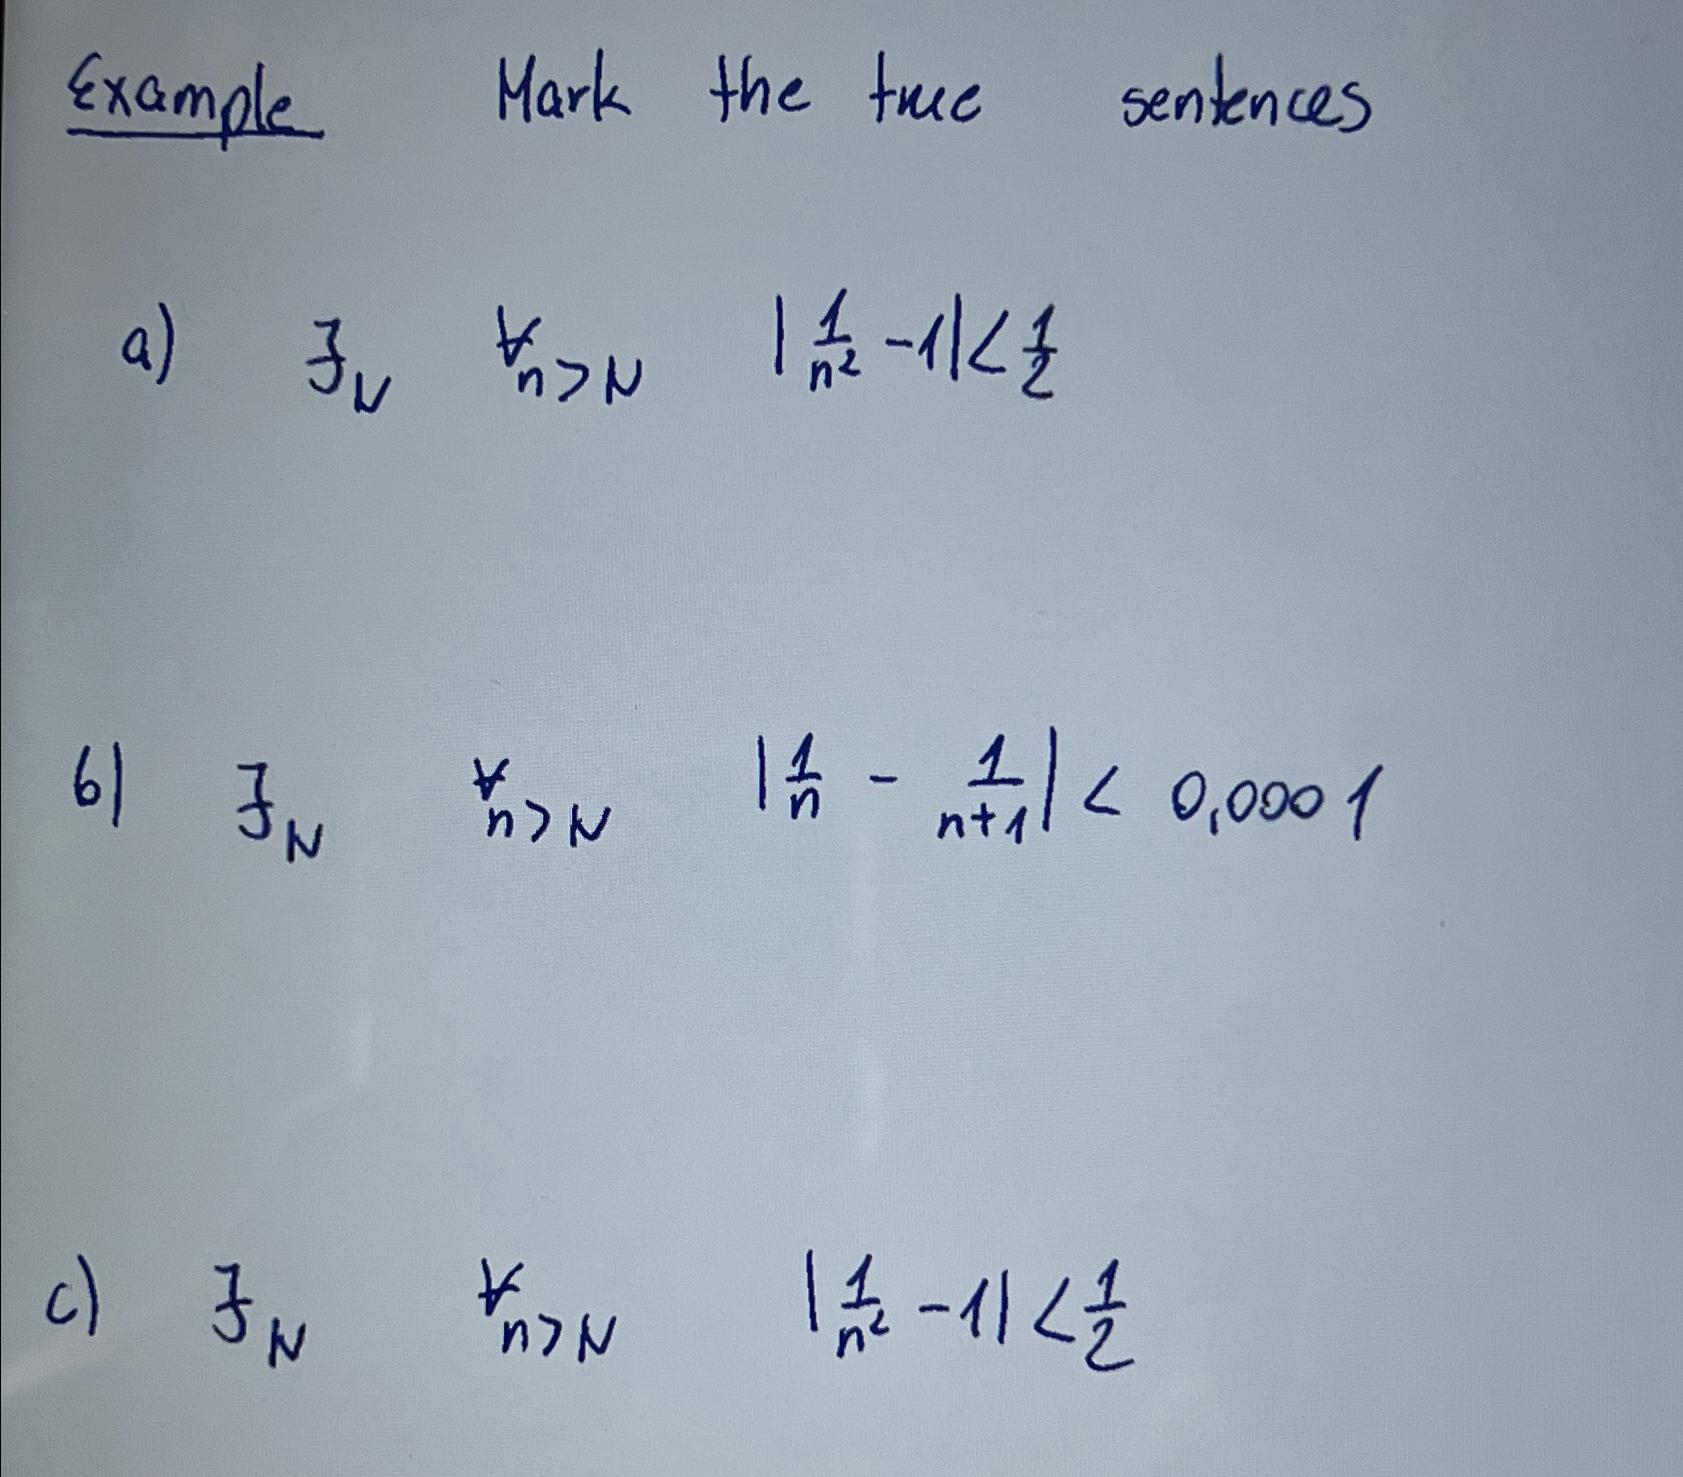 Example Mark the true sentences
a) ∃_N ∀_{n>N} |1/n² - 1| < 1/2
b) ∃_N ∀_{n>N} |1/n - 1/(n+1)| < 0,0001
c) ∃_N ∀_{n>N} |1/n² - 1| < 1/2